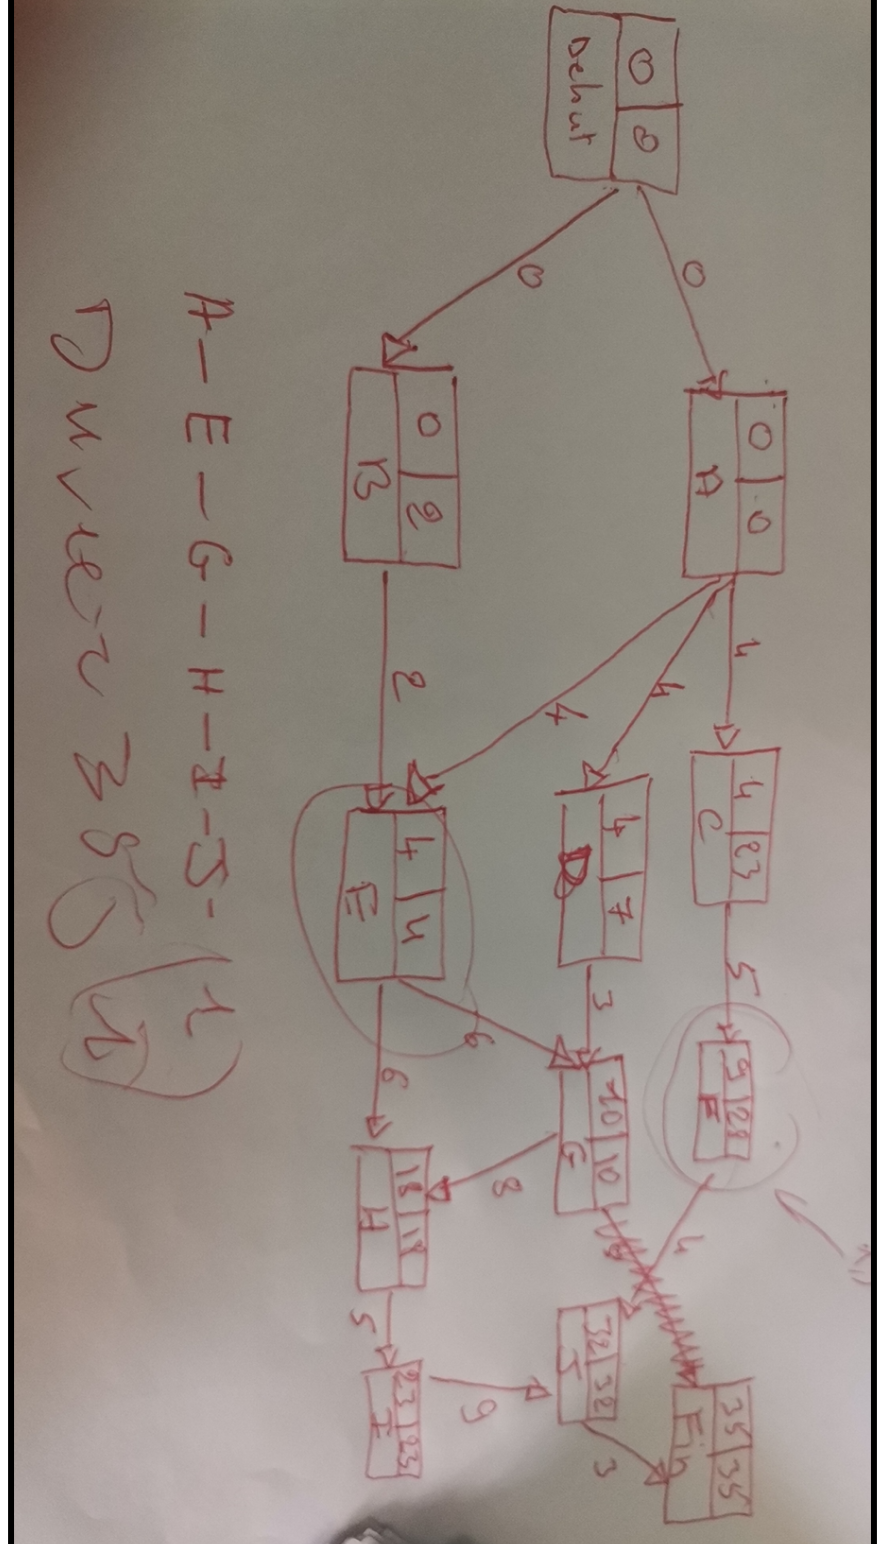 0 0
Debut
0
0
0 0
A
0 2
B
4
4
4
2
4 23
C
4 7
D
4 4
E
5
3
6
6
9 28
F
10 10
G
18 18
H
4
8
5
32 32
J
23 23
I
9
3
35 35
Fin
A-E-G-H-I-J-